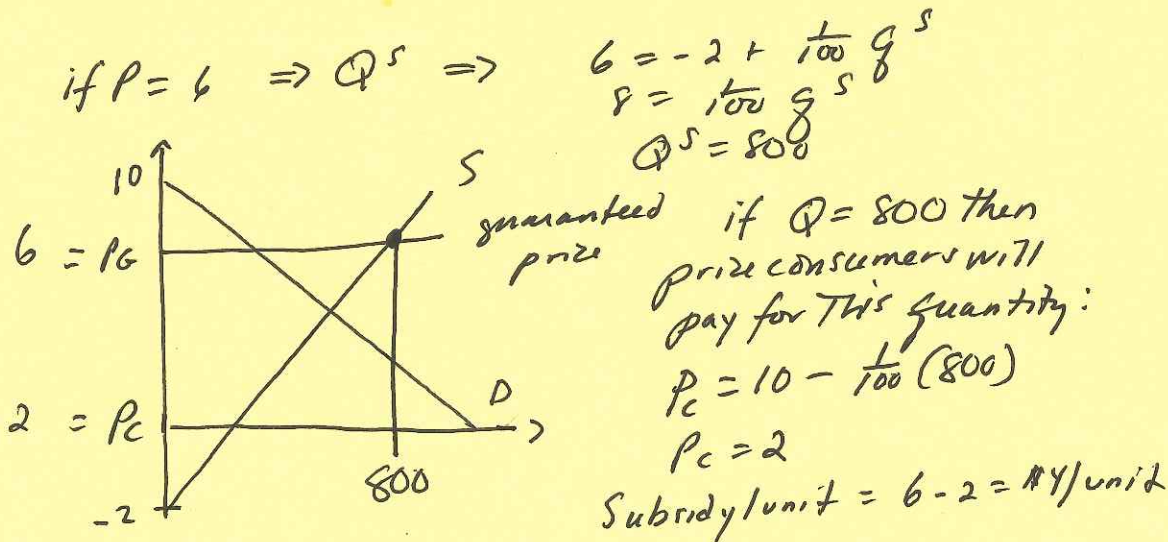 if P = 6 ⇒ Q^S ⇒ 6 = -2 + 1/100 q^S
8 = 1/100 q^S
Q^S = 800
10
S
6 = P_G
guaranteed
prize
2 = P_C
D
800
-2
if Q = 800 then
prize consumers will
pay for This quantity:
P_c = 10 - 1/100 (800)
P_c = 2
Subsidy/unit = 6 - 2 = $4/unit